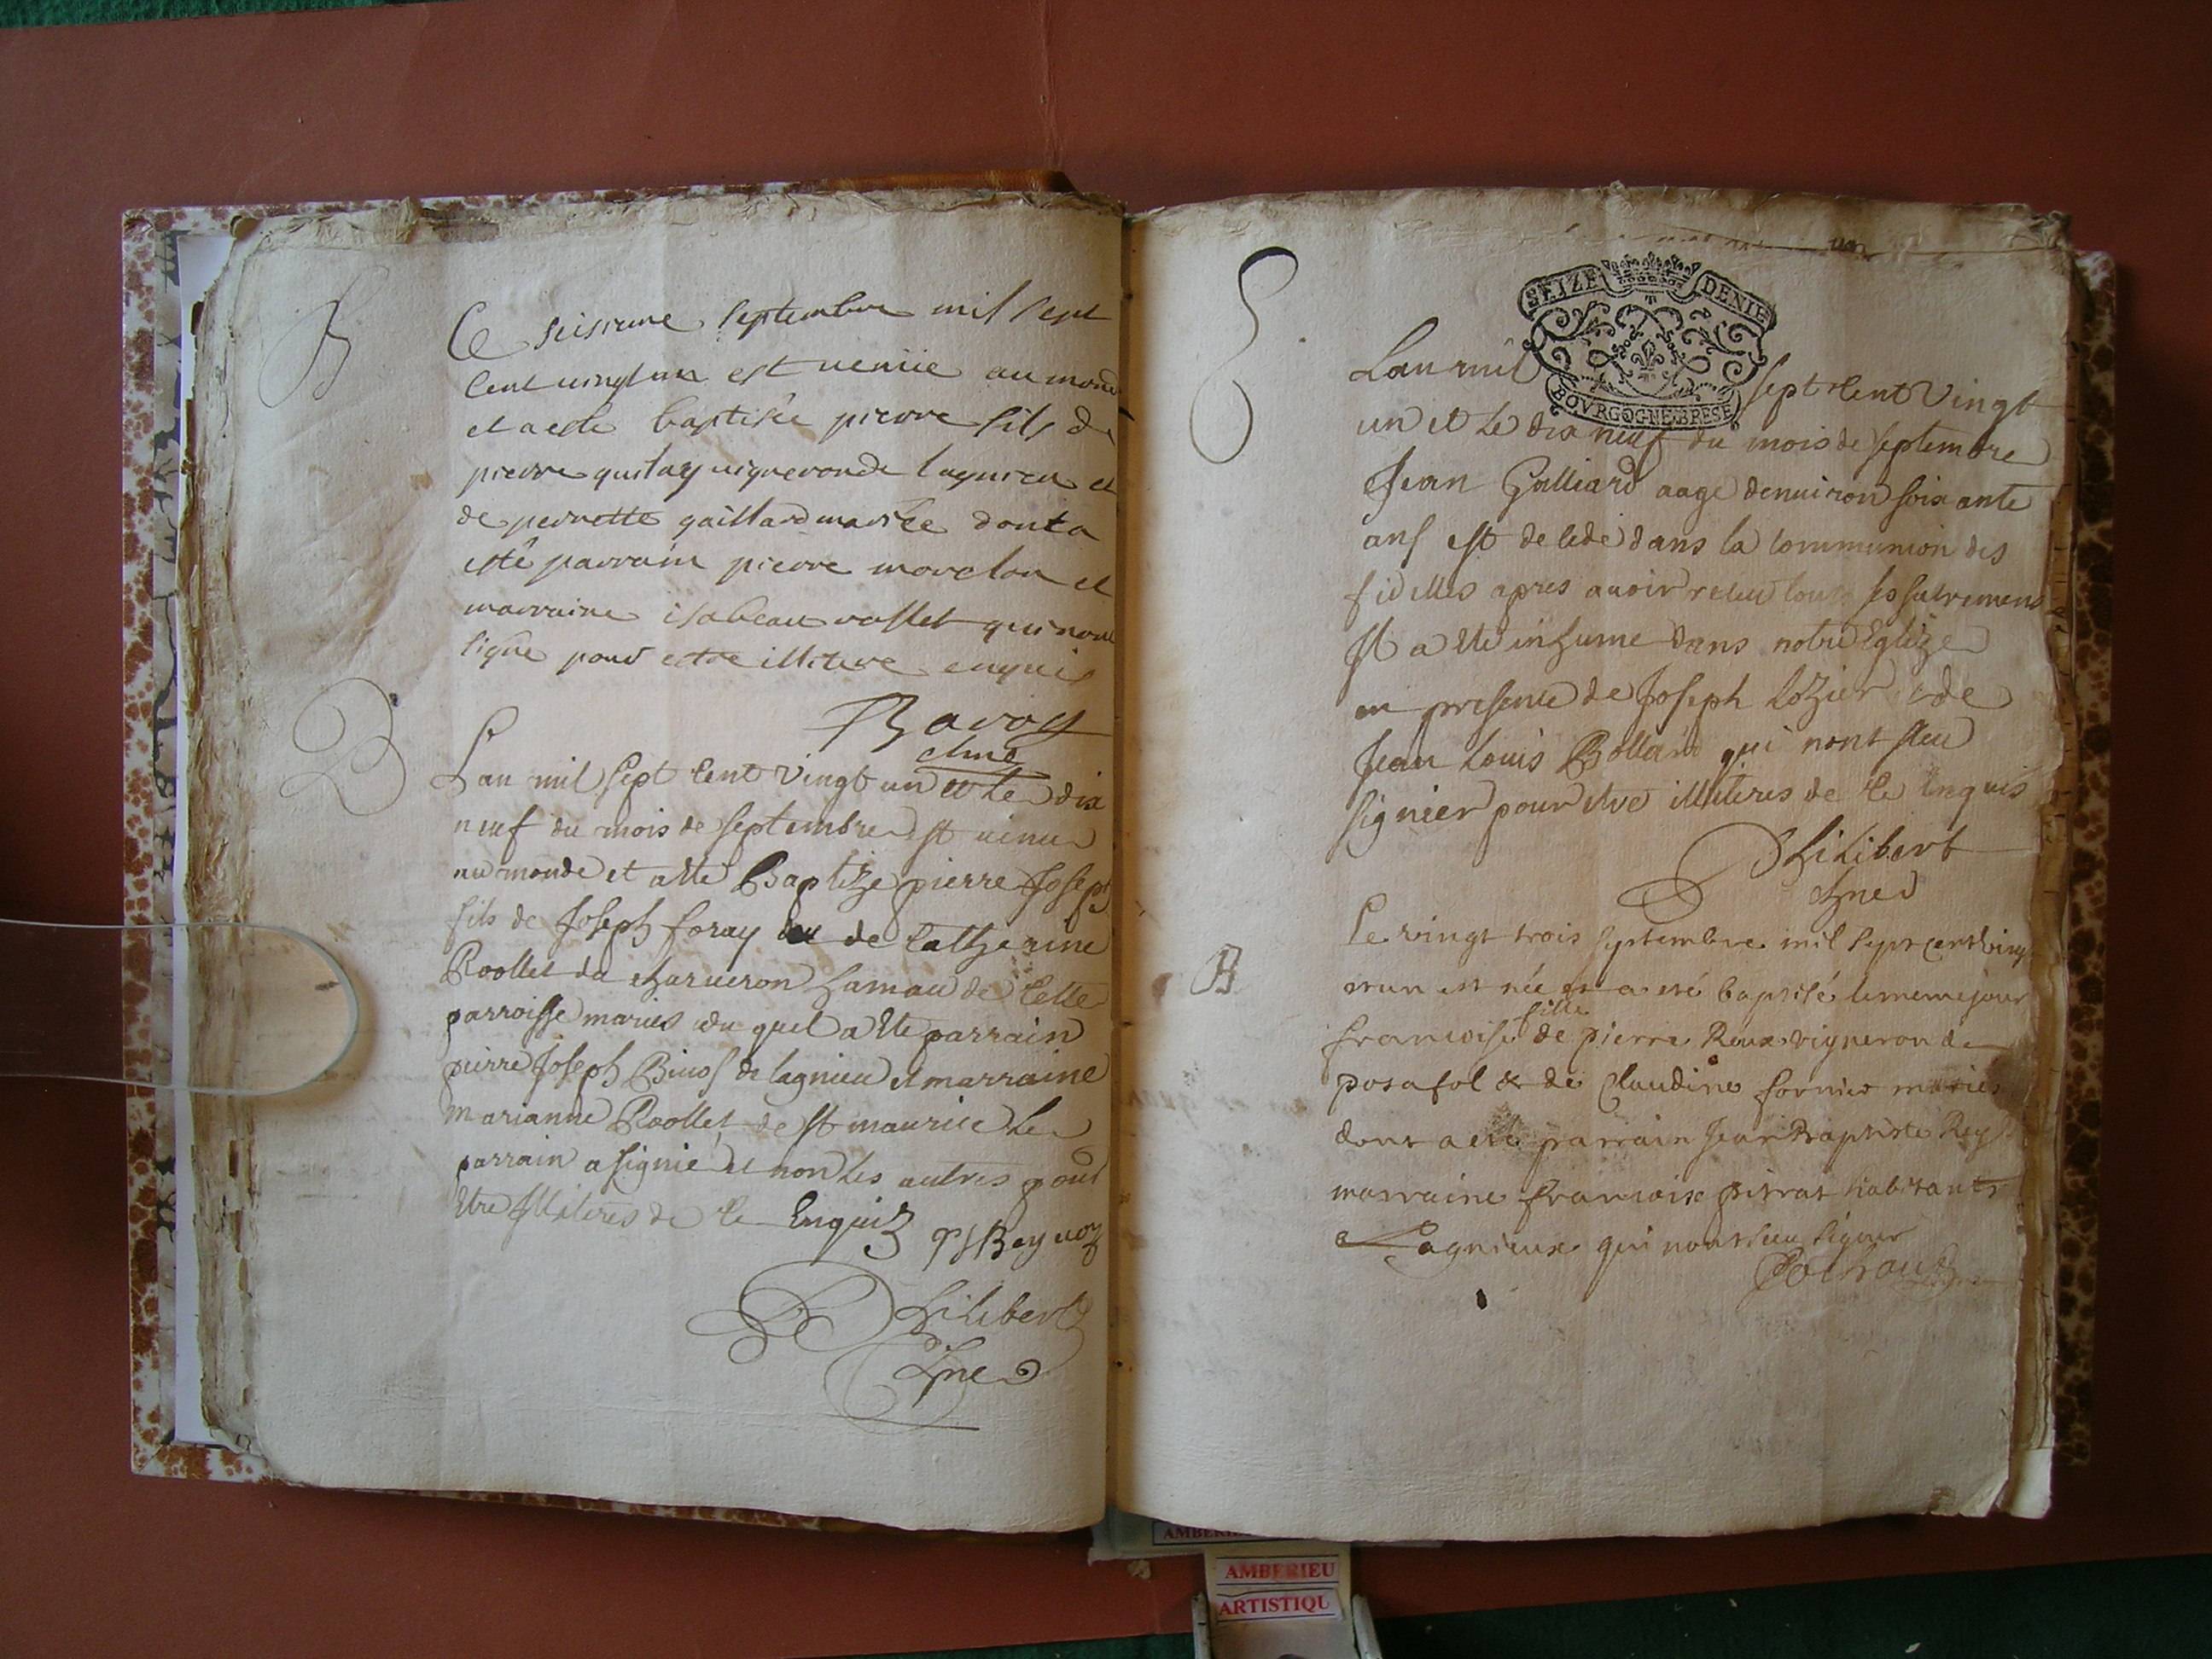 B
Ce seisieme septembre mil sept
cent vingt un est venüe au monde
et a esté baptisée pierre fils de
pierre quitay vigneron de lagnieu et
de pernette gaillard mariée dont a
esté parrain pierre morelon et
marraine isabeau vallet qui n'ont
signe pour estre illitere enquis
Bavoz
chne
B
Lan mil sept cent vingt un et le dix
neuf du mois de septembre est uenu
au monde et a ette Baptize pierre Joseph
fils de Joseph foray de Catherine
Roollet de charueron hamau de cette
parroisse maries du quel a ette parrain
pierre Joseph de lagnieu et marraine
marianne Roollet de st maurice le
parrain a signié et non les autres pour
etre Illiteres de ce Enquiz
Philibert
chne
S
SEIZE DENIE
BOVRGOGNE BRESE
Lan mil sept cent vingt
un et le dix neuf du mois de septembre
Jean Galliard aage denuiron soixante
ans est decedé dans la communion des
fidelles apres auoir receu tous ses sacremens
Il a ette inhume dans notre Eglize
en presence de Joseph lozier & de
Jean Louis Bollard qui nont sceu
signier pour etre illiteres de ce Enquis
Philibert
chne
B
Le vingt trois septembre mil sept cent vingt
et un est née et a eté baptisé le meme jour
francoise fille de pierre Roux vigneron de
posafol & de Claudine fornier mariés
dont a eté parrain Jean Baptiste Rey
marraine francoise pitrat habitants
a Lagnieux qui nont sceu signer
AMBERIEU
ARTISTIQU